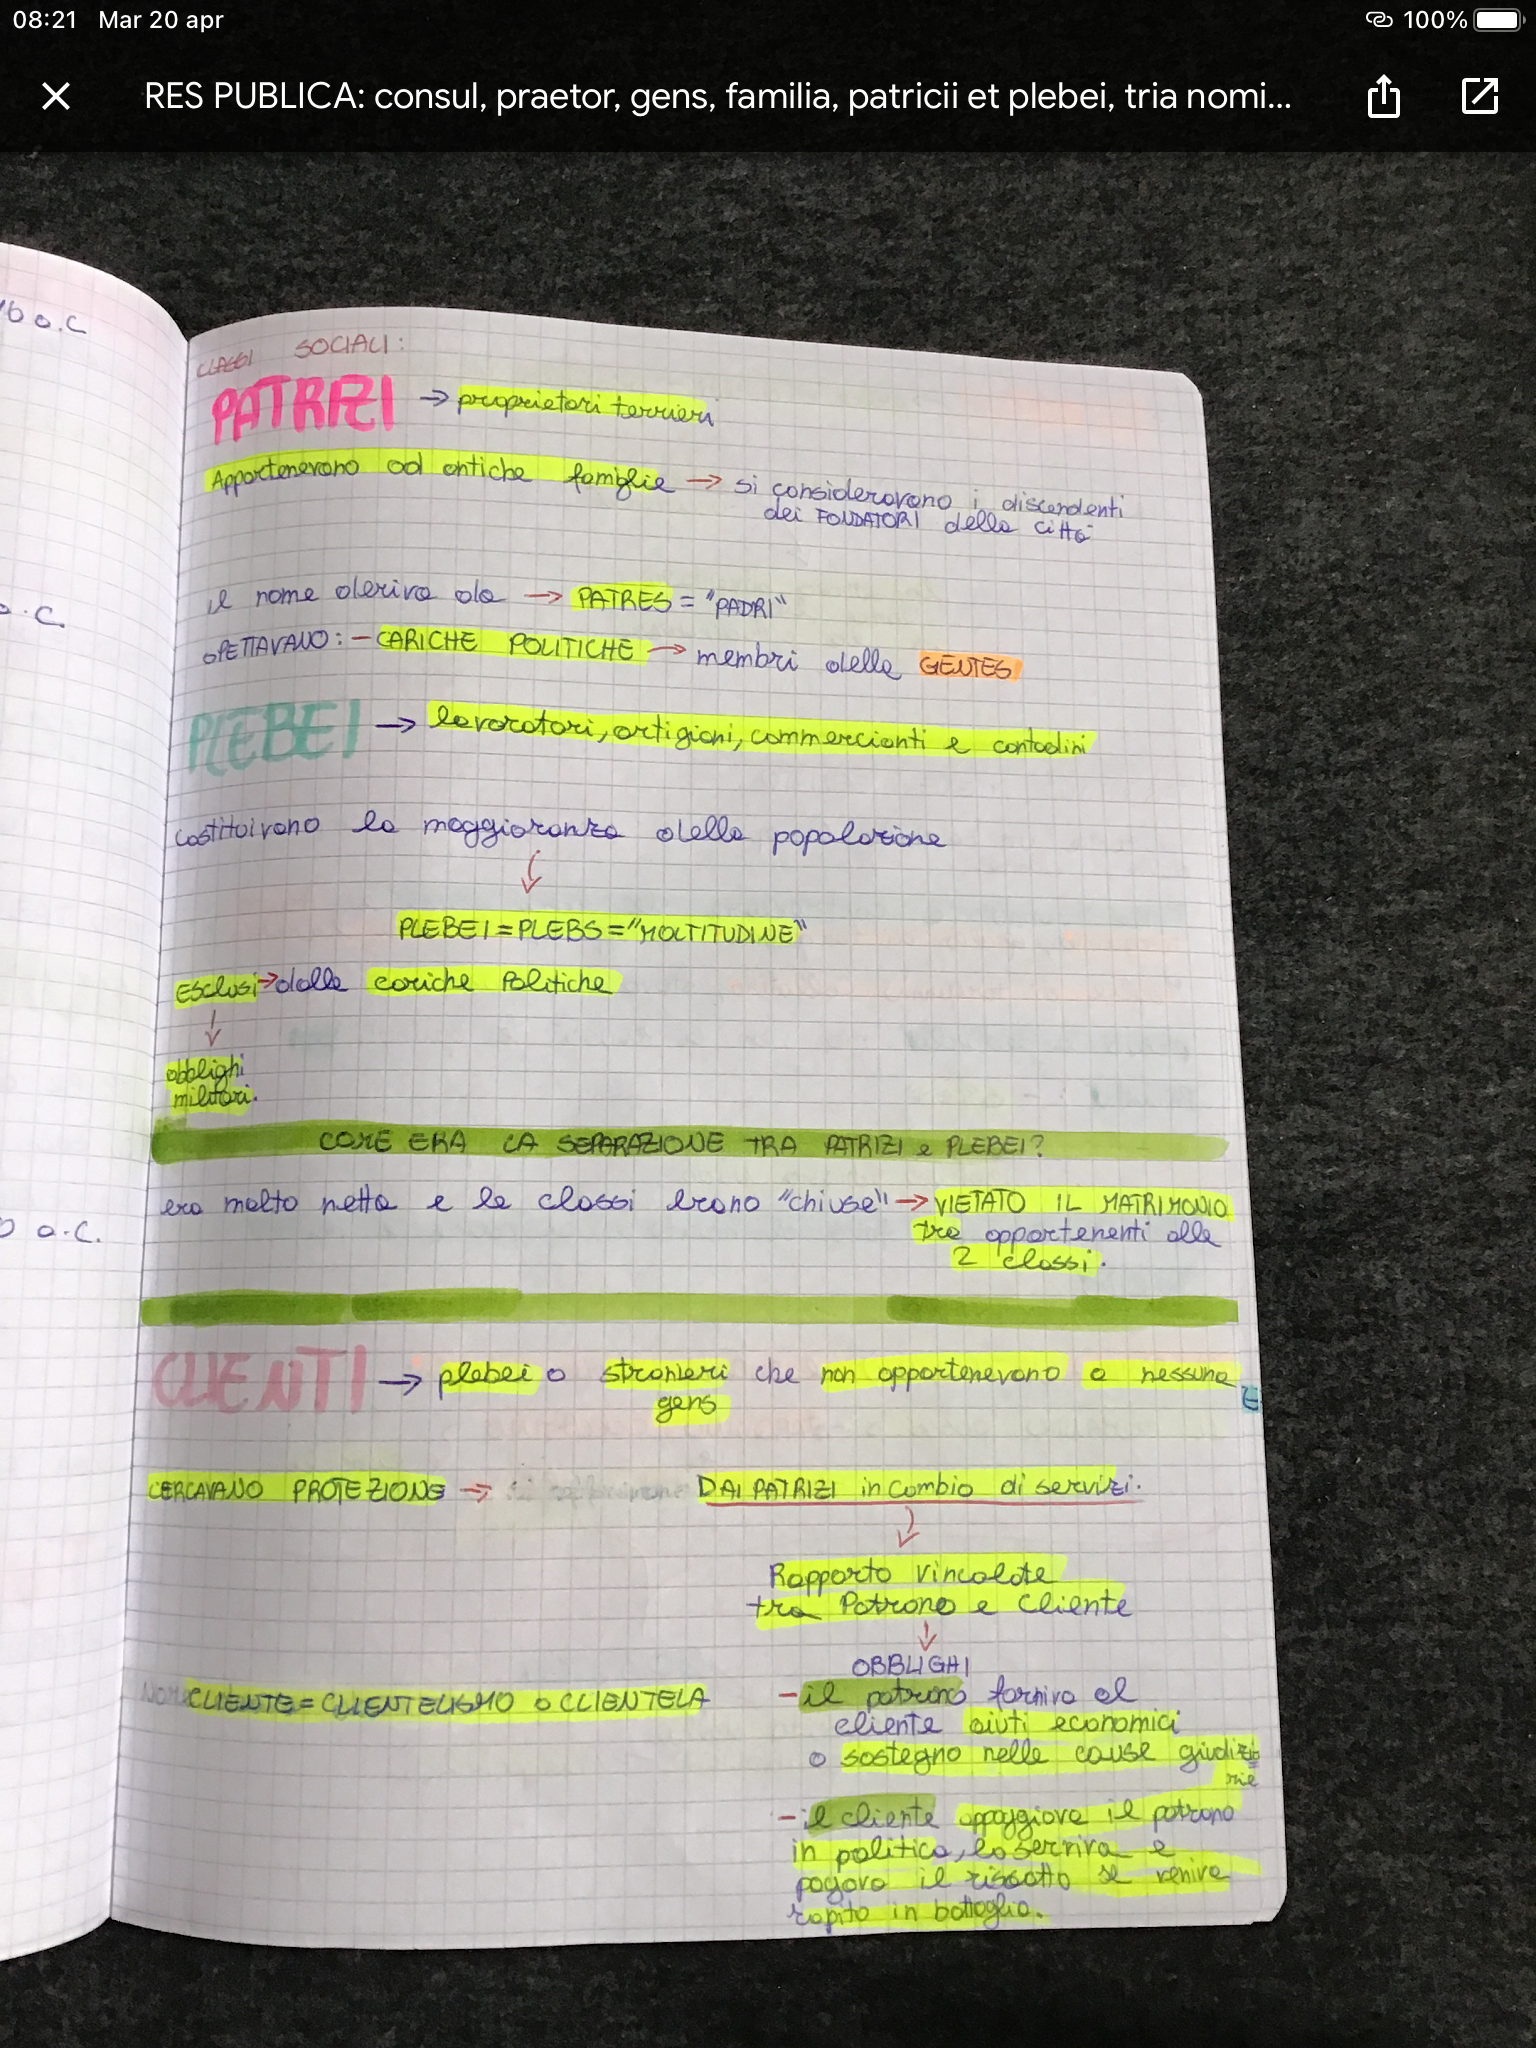 08:21 Mar 20 apr
100%
RES PUBLICA: consul, praetor, gens, familia, patricii et plebei, tria nomi...
16 a.C
a.C.
o a.C.
CLASSI SOCIALI:
PATRIZI → proprietari terrieri
Appartenevano ad antiche famiglie → si consideravano i discendenti
dei FONDATORI della città
il nome deriva da → PATRES = "PADRI"
SPETTAVANO: - CARICHE POLITICHE → membri delle GENTES
PLEBEI → lavoratori, artigiani, commercianti e contadini
costituivano la maggioranza della popolazione
↓
PLEBEI = PLEBS = "MOLTITUDINE"
ESclusi → dalle cariche Politiche
↓
obblighi
militari.
COME ERA LA SEPARAZIONE TRA PATRIZI e PLEBEI?
era molto netta e le classi erano "chiuse" → VIETATO IL MATRIMONIO
tra appartenenti alle
2 classi.
CLIENTI → plebei o stranieri che non appartenevano a nessuna
gens
CERCAVANO PROTEZIONE → DAI PATRIZI in cambio di servizi.
↓
Rapporto vincolate
tra Patrono e Cliente
↓
OBBLIGHI
CLIENTE = CLIENTELISMO o CLIENTELA
- il patrono forniva al
cliente aiuti economici
o sostegno nelle cause giudizia
rie
- il cliente appoggiava il patrono
in politica, lo serviva e
pagava il riscatto se veniva
rapito in battaglia.